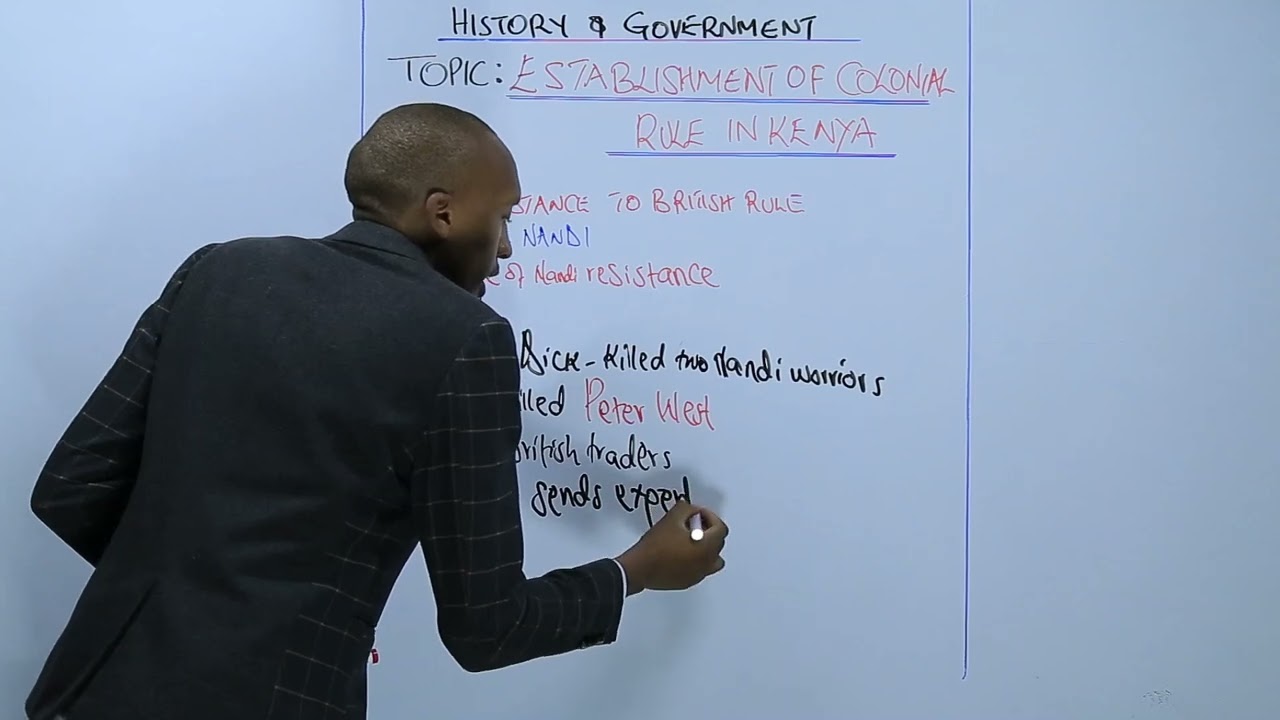 HISTORY & GOVERNMENT
TOPIC: ESTABLISHMENT OF COLONIAL
RULE IN KENYA
STANCE TO BRITISH RULE
NANDI
of Nandi resistance
Dick - killed two Nandi worriors
lled Peter West
british traders
sends exped